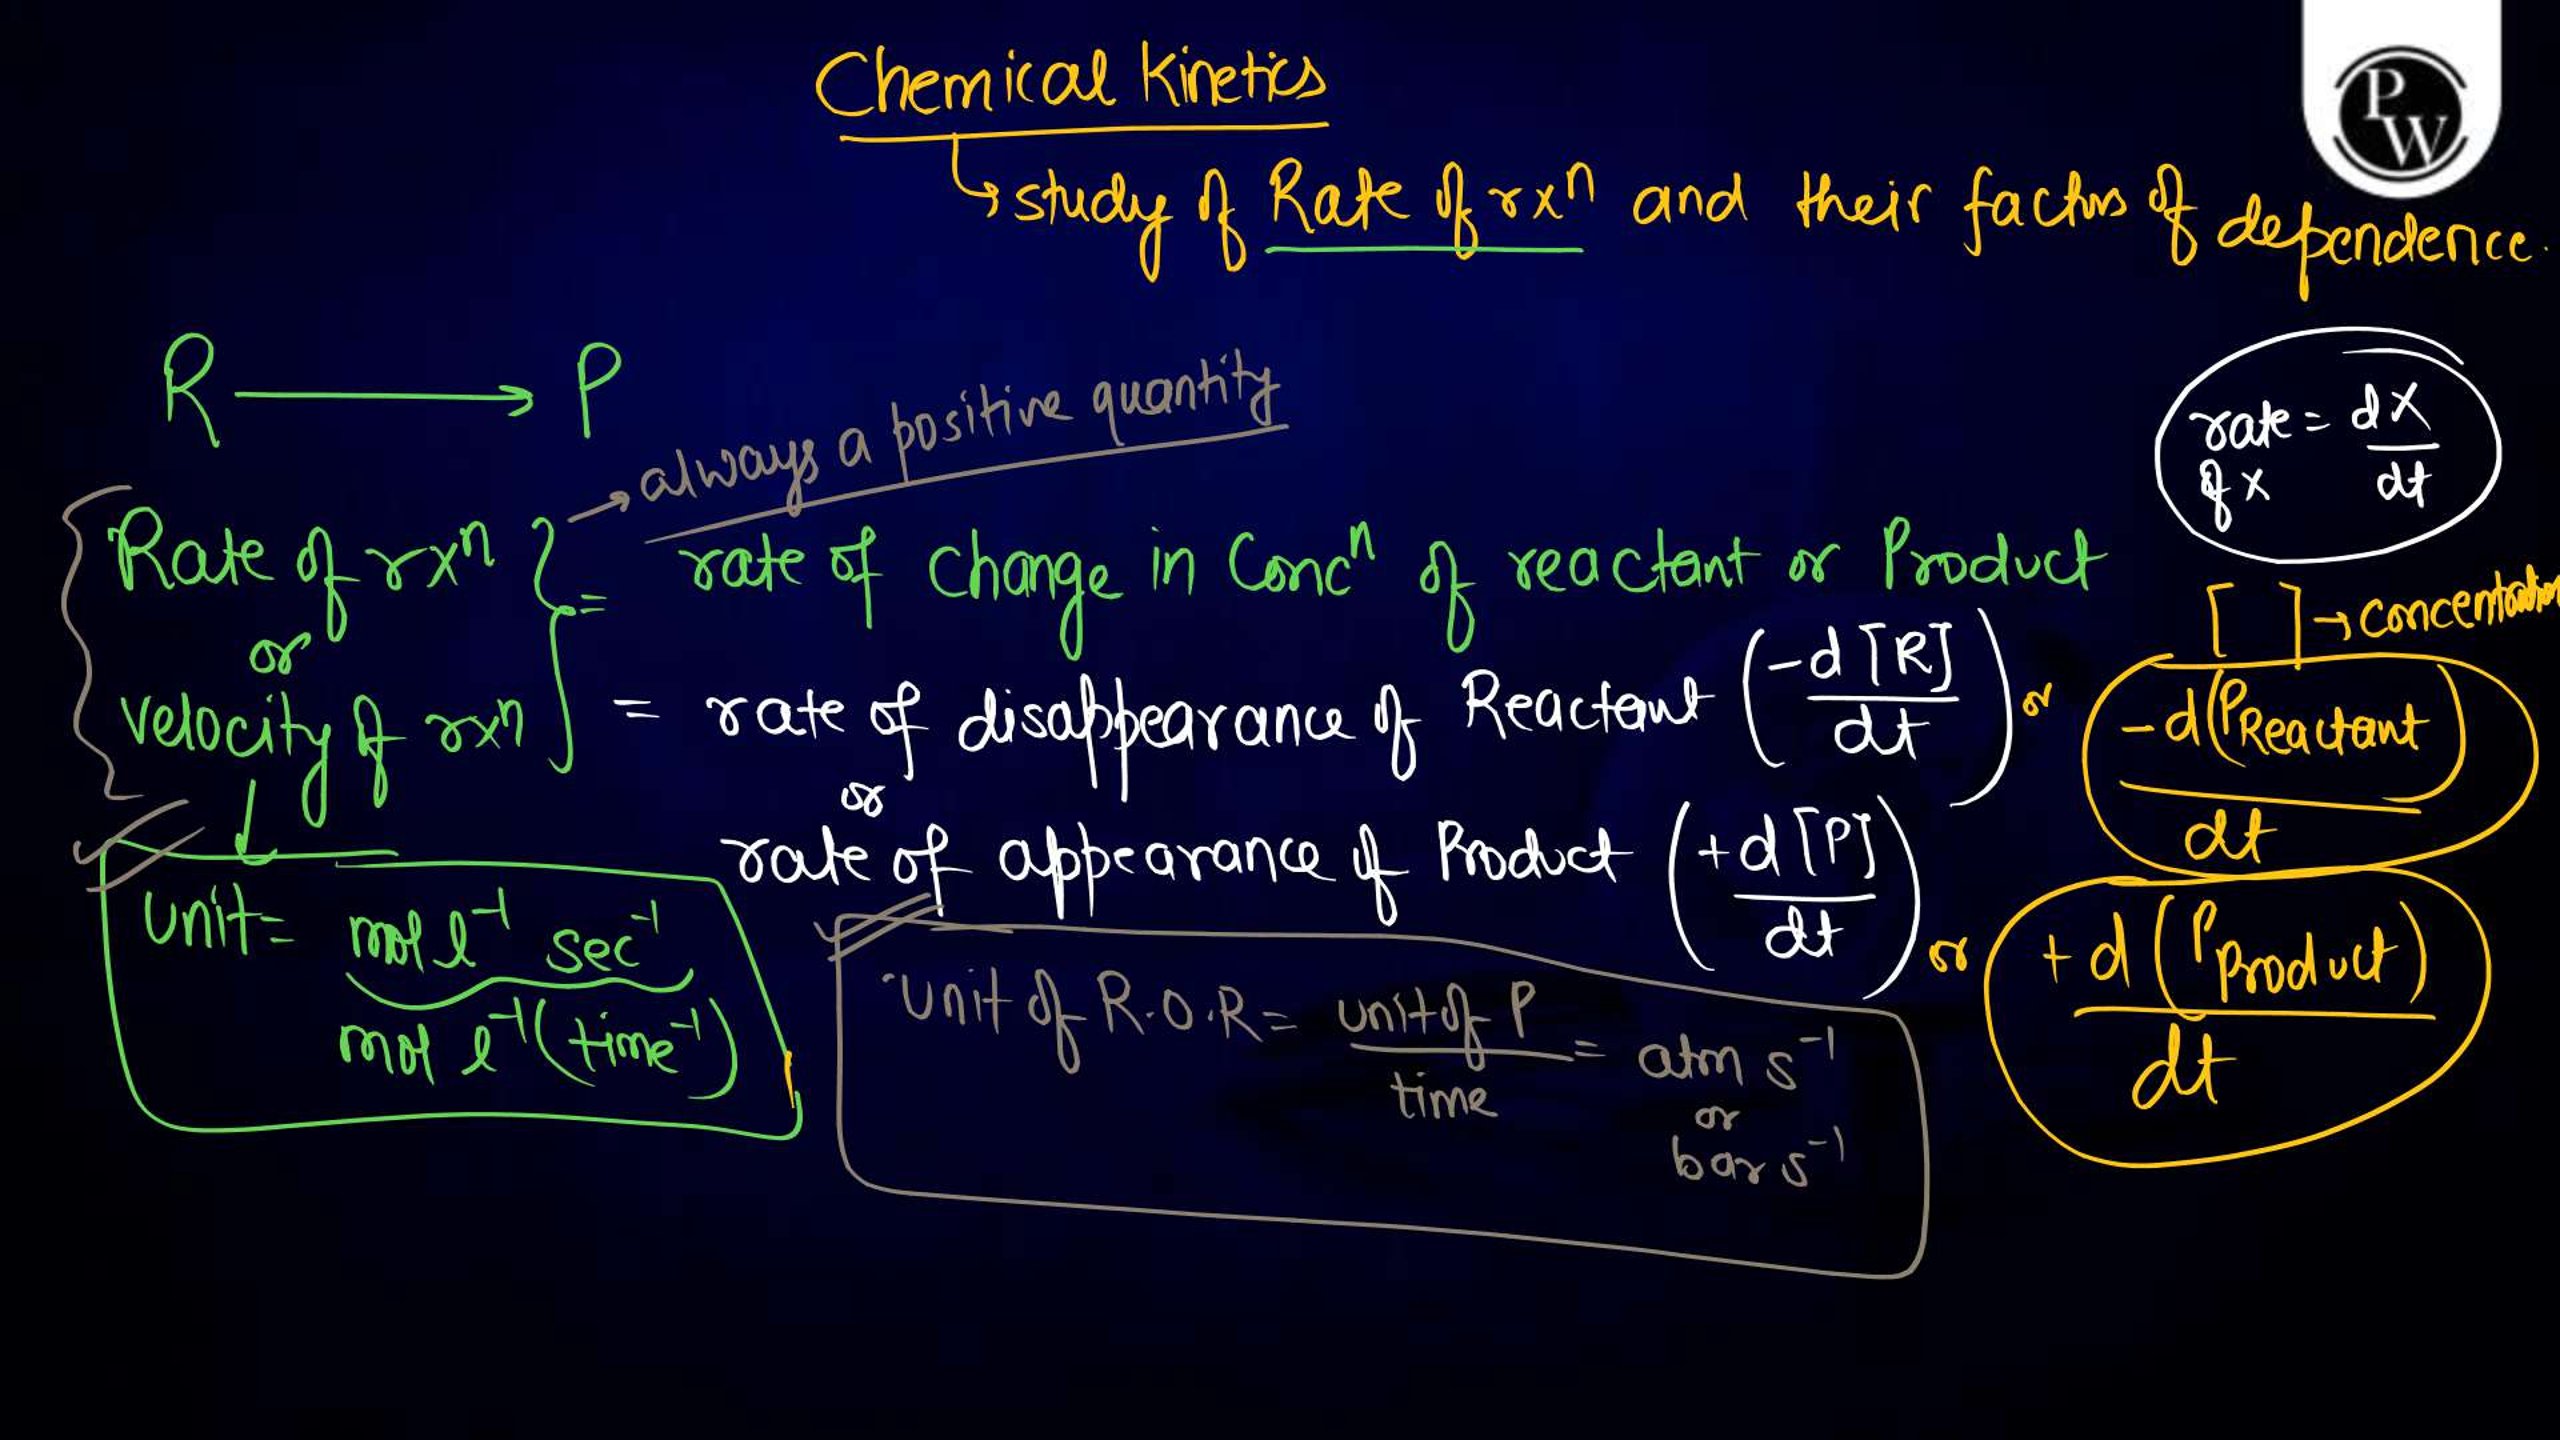 Chemical Kinetics
PW
→ study of Rate of rxⁿ and their factors of dependence.
R → P
→ always a positive quantity
rate of x = dx/dt
Rate of rxⁿ
or
velocity of rxⁿ
= rate of change in Concⁿ of reactant or Product
[ ] → concentration
= rate of disappearance of Reactant (-d[R]/dt) or -d(P_Reactant)/dt
or
rate of appearance of Product (+d[P]/dt) or +d(P_Product)/dt
unit = mol l⁻¹ sec⁻¹
mol l⁻¹ (time⁻¹)
unit of R.O.R = unit of P/time = atm s⁻¹
or
bar s⁻¹